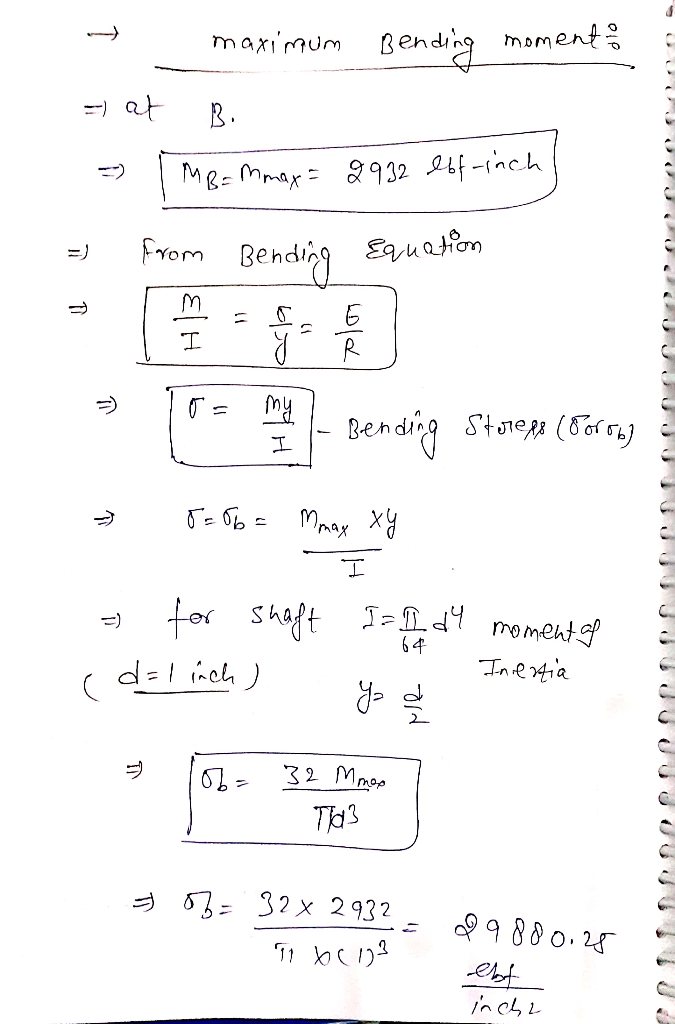 → maximum Bending moment :
⇒ at B.
⇒ MB = Mmax = 2932 lbf-inch
⇒ From Bending Equation
⇒ M/I = σ/y = E/R
⇒ σ = My/I - Bending Stress (σ or σb)
⇒ σ = σb = Mmax × y / I
⇒ for shaft I = π/64 d⁴ moment of Inertia
(d = 1 inch) y = d/2
⇒ σb = 32 Mmax / πd³
⇒ σb = 32 × 2932 / π × (1)³ = 29880.25 lbf/inch²